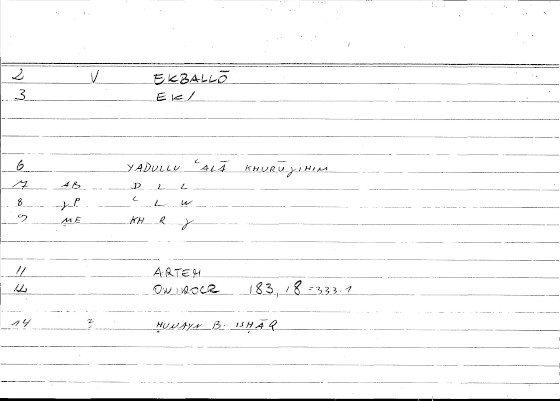 2 V EKBALLŌ
3 EK/
6 YADULLU ʿALĀ KHURŪJIHIM
7 AB D L L
8 JP ʿ L W
9 ME KH R J
11 ARTEM
12 ONIROCR 183,18=333.1
14 2 ḤUNAYN B. ISḤĀQ